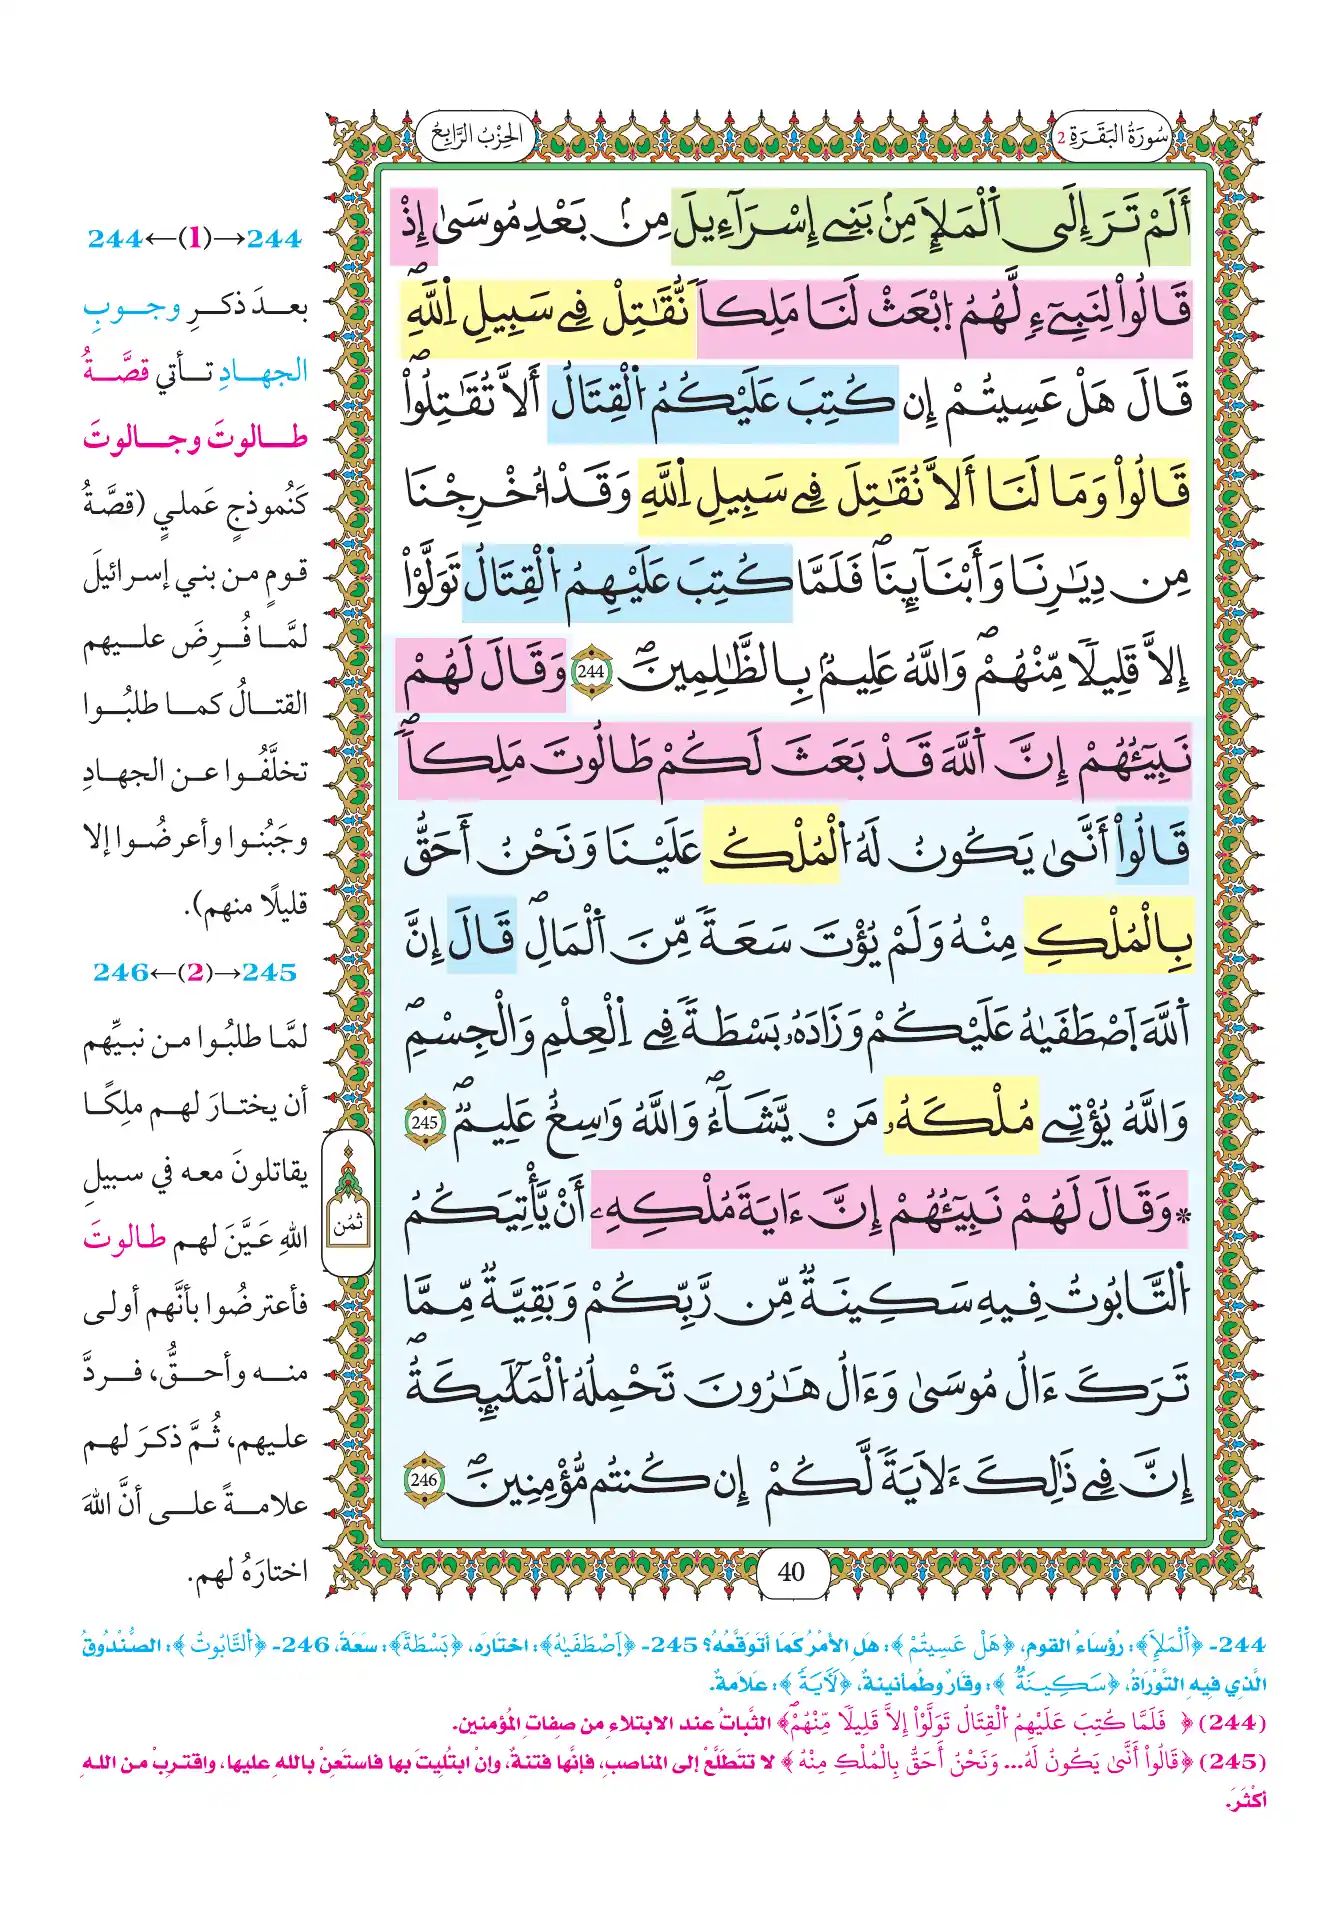 سُورَةُ البَقَرَةِ 2
الحِزْبُ الرَّابِعُ
أَلَمْ تَرَ إِلَى اَ۬لْمَلَإِ مِنۢ بَنِےٓ إِسْرَآءِيلَ مِنۢ بَعْدِ مُوسَىٰٓ إِذْ
قَالُواْ لِنَبِيٓءٖ لَّهُمُ اُ۪بْعَثْ لَنَا مَلِكاٗ نُّقَٰتِلْ فِے سَبِيلِ اِ۬للَّهِۖ
قَالَ هَلْ عَسِيتُمُۥٓ إِن كُتِبَ عَلَيْكُمُ اُ۬لْقِتَالُ أَلَّا تُقَٰتِلُواْۖ
قَالُواْ وَمَا لَنَآ أَلَّا نُقَٰتِلَ فِے سَبِيلِ اِ۬للَّهِ وَقَدُ ا۟خْرِجْنَا
مِن دِيَٰرِنَا وَأَبْنَآئِنَاۖ فَلَمَّا كُتِبَ عَلَيْهِمُ اُ۬لْقِتَالُ تَوَلَّوِاْ
اِلَّا قَلِيلاٗ مِّنْهُمْۖ وَاللَّهُ عَلِيمُۢ بِالظَّٰلِمِينَۖ 244 وَقَالَ لَهُمْ
نَبِيٓـُٔهُمُۥٓ إِنَّ اَ۬للَّهَ قَدْ بَعَثَ لَكُمْ طَالُوتَ مَلِكاٗۖ
قَالُوٓاْ أَنَّىٰ يَكُونُ لَهُ اُ۬لْمُلْكُ عَلَيْنَا وَنَحْنُ أَحَقُّ
بِالْمُلْكِ مِنْهُ وَلَمْ يُوتَ سَعَةٗ مِّنَ اَ۬لْمَالِۖ قَالَ إِنَّ
اَ۬للَّهَ اَ۪صْطَفَيٰهُ عَلَيْكُمْ وَزَادَهُۥ بَسْطَةٗ فِے اِ۬لْعِلْمِ وَالْجِسْمِۖ
وَاللَّهُ يُؤْتِے مُلْكَهُۥ مَنْ يَّشَآءُۖ وَاللَّهُ وَٰسِعٌ عَلِيمٞۖ 245
۞وَقَالَ لَهُمْ نَبِيٓـُٔهُمُۥٓ إِنَّ ءَايَةَ مُلْكِهِۦٓ أَنْ يَّأْتِيَكُمُ
اُ۬لتَّابُوتُ فِيهِ سَكِينَةٞ مِّن رَّبِّكُمْ وَبَقِيَّةٞ مِّمَّا
تَرَكَ ءَالُ مُوسَىٰ وَءَالُ هَٰرُونَ تَحْمِلُهُ اُ۬لْمَلَٰٓئِكَةُۖ
إِنَّ فِے ذَٰلِكَ ءَلَايَةٗ لَّكُمُۥٓ إِن كُنتُم مُّؤْمِنِينَۖ 246
ثمن
40
244←(1)→244
بعدَ ذكرِ وجوبِ
الجهادِ تأتي قصَّةُ
طالوتَ وجالوتَ
كَنُموذجٍ عَمليٍ (قصَّةُ
قومٍ من بني إسرائيلَ
لمَّا فُرِضَ عليهم
القتالُ كما طلبُوا
تخلَّفُوا عن الجهادِ
وجَبُنوا وأعرضُوا إلا
قليلًا منهم).
245←(2)→246
لمَّا طلبُوا من نبيِّهم
أن يختارَ لهم ملِكًا
يقاتلونَ معه في سبيلِ
اللهِ عَيَّنَ لهم طالوتَ
فأعترضُوا بأنَّهم أولى
منه وأحقُّ، فردَّ
عليهم، ثُمَّ ذكرَ لهم
علامةً على أنَّ اللهَ
اختارَهُ لهم.
244- ﴿اَ۬لْمَلَإِ﴾: رُؤسَاءُ القومِ، ﴿هَلْ عَسِيتُمْ﴾: هَلِ الأمْرُ كَمَا أتَوَقَّعُهُ؟ 245- ﴿اَ۪صْطَفَيٰهُ﴾: اختَارَه، ﴿بَسْطَةٗ﴾: سَعَةً، 246- ﴿اُ۬لتَّابُوتُ﴾: الصُّنْدُوقُ
الَّذي فيهِ التَّوْرَاةُ، ﴿سَكِينَةٞ﴾: وقَارٌ وطُمأنينةٌ، ﴿لَأٓيَةٗ﴾: عَلَامةً.
(244) ﴿فَلَمَّا كُتِبَ عَلَيْهِمُ اُ۬لْقِتَالُ تَوَلَّوْاْ إِلَّا قَلِيلاٗ مِّنْهُمْۖ﴾ الثَّباتُ عند الابتلاءِ من صفاتِ المُؤمنين.
(245) ﴿قَالُوٓاْ أَنَّىٰ يَكُونُ لَهُ... وَنَحْنُ أَحَقُّ بِالْمُلْكِ مِنْهُ﴾ لا تتَطَلَّعْ إلى المناصبِ، فإنَّها فتنةٌ، وإنْ ابتُلِيتَ بها فاستَعِنْ باللهِ عليها، واقتربْ من اللهِ
أكْثَرَ.